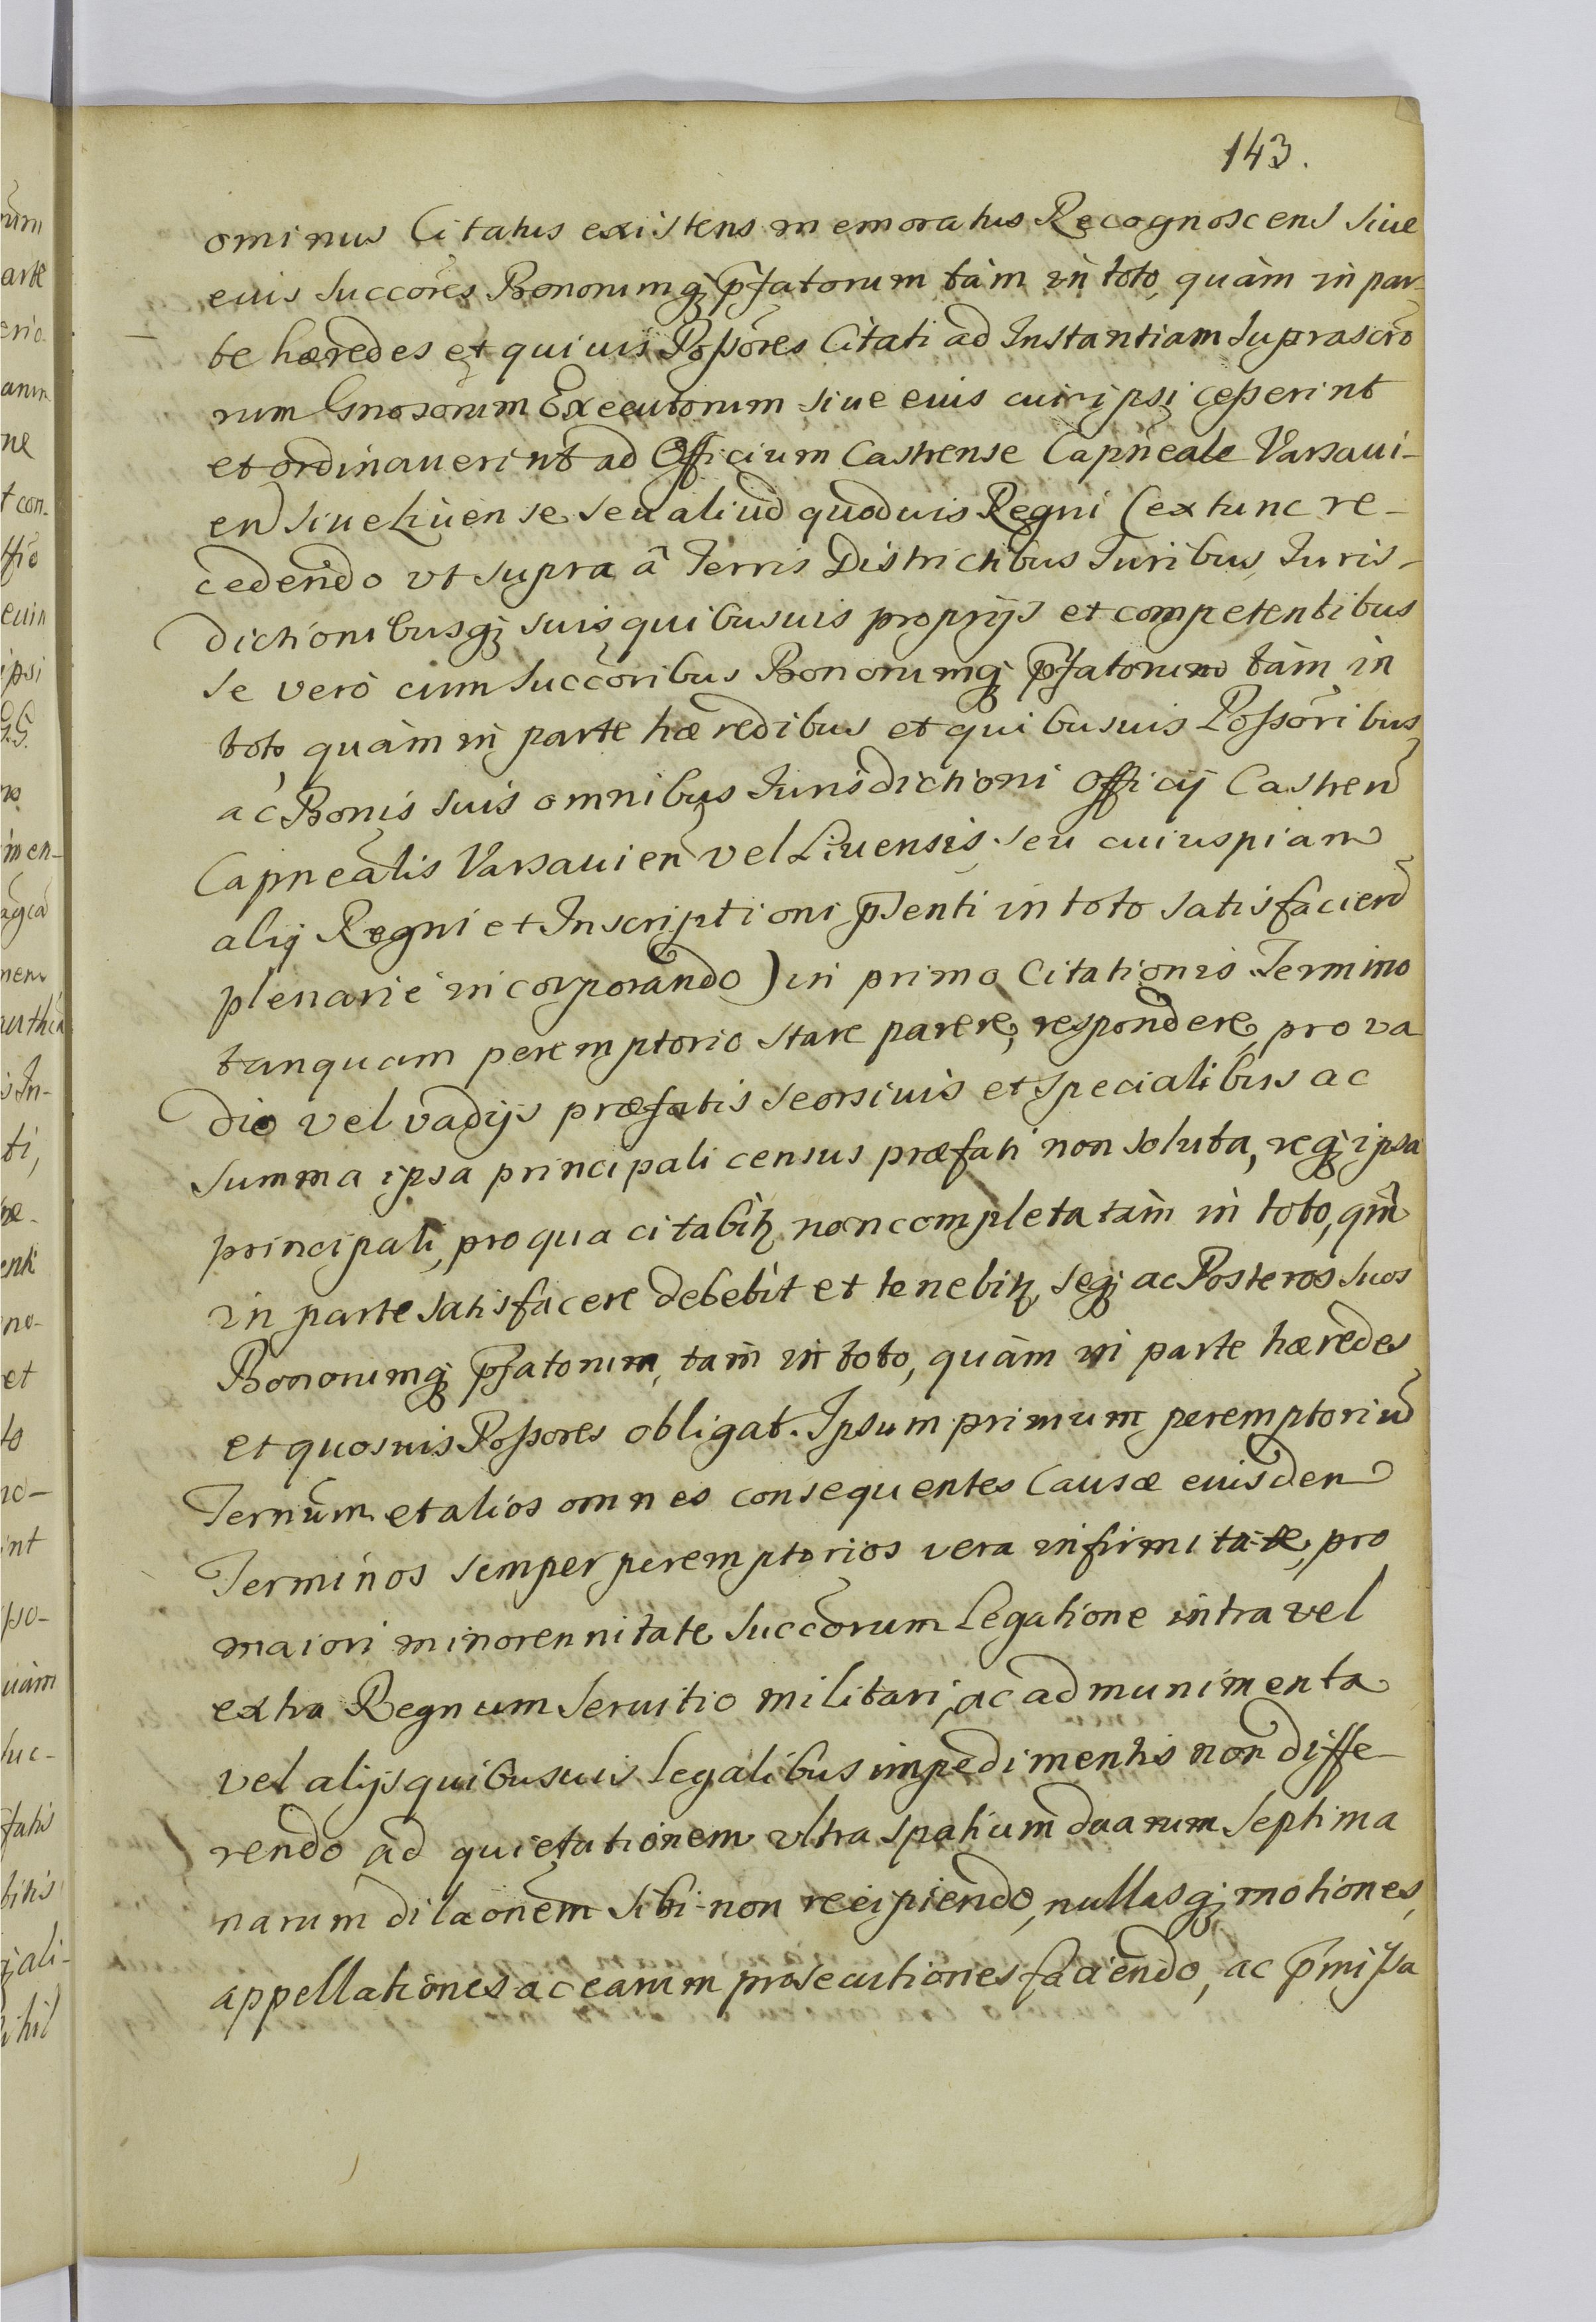 143.
ominus Citatus existens memoratus Recognoscens siue
eius succōres Bonorumq̃ p̄fatorum tàm in toto, quàm in par-
te hæredes et quiuis Possōres Citati ad Instantiam suprascr̄o
rum Gnosorum Executorum siue eius cui ipsi cesserint
et ordinauerint ad Officium Castrense Capn̄eale Varsaui-
en̄ siue Liuense seu aliud quoduis Regni (extunc re-
cedendo vt supra â Terris Districtibus Iuribus, Iuris-
dictionibusq̃ suis quibusuis proprijs et competentibus
se verò cum succōribus Bonorumq̃ p̄fatorum tàm in
toto quàm in parte hæredibus et quibusuis Possōribus,
ac Bonis suis omnibus Iurisdictioni Officij Castren̄
Capnealis Varsauien̄ vel Liuensis seu cuiuspiam
alij Regni et Inscriptioni p̄senti in toto satisfaciend̄
plenarie incorporando) in primo Citationis Termino
tanquam peremptorio stare parere, respondere, pro va
dio vel vadijs præfatis seorsiuis et specialibus ac
summa ipsa principali census præfati non soluta, req̃ ipsa
principali, pro qua citabitꝛ non completa tàm in toto, qm̄
in parte satisfacere debebit et tenebitꝛ, seq̃ ac Posteros suos
Bonorumq̃ p̄fatorum, tàm in toto, quàm in parte hæredes
et quosuis Possores obligat. Ipsum primum peremptoriū
Tern̄um et alios omnes consequentes Causæ eiusdem
Terminos semper peremptorios vera infirmitate, pro
maiori minorennitate succōrum Legatione intra vel
extra Regnum seruitio militari, ac ad munimenta
vel alijs quibusuis legalibus impedimentis non diffe-
rendo ad quietationem vltra spatium duarum septima
narum dilaōnem sibi non recipiendo, nullasq̃ motiones,
appellationes ac earum prosecutiones faciendo, ac p̄missa